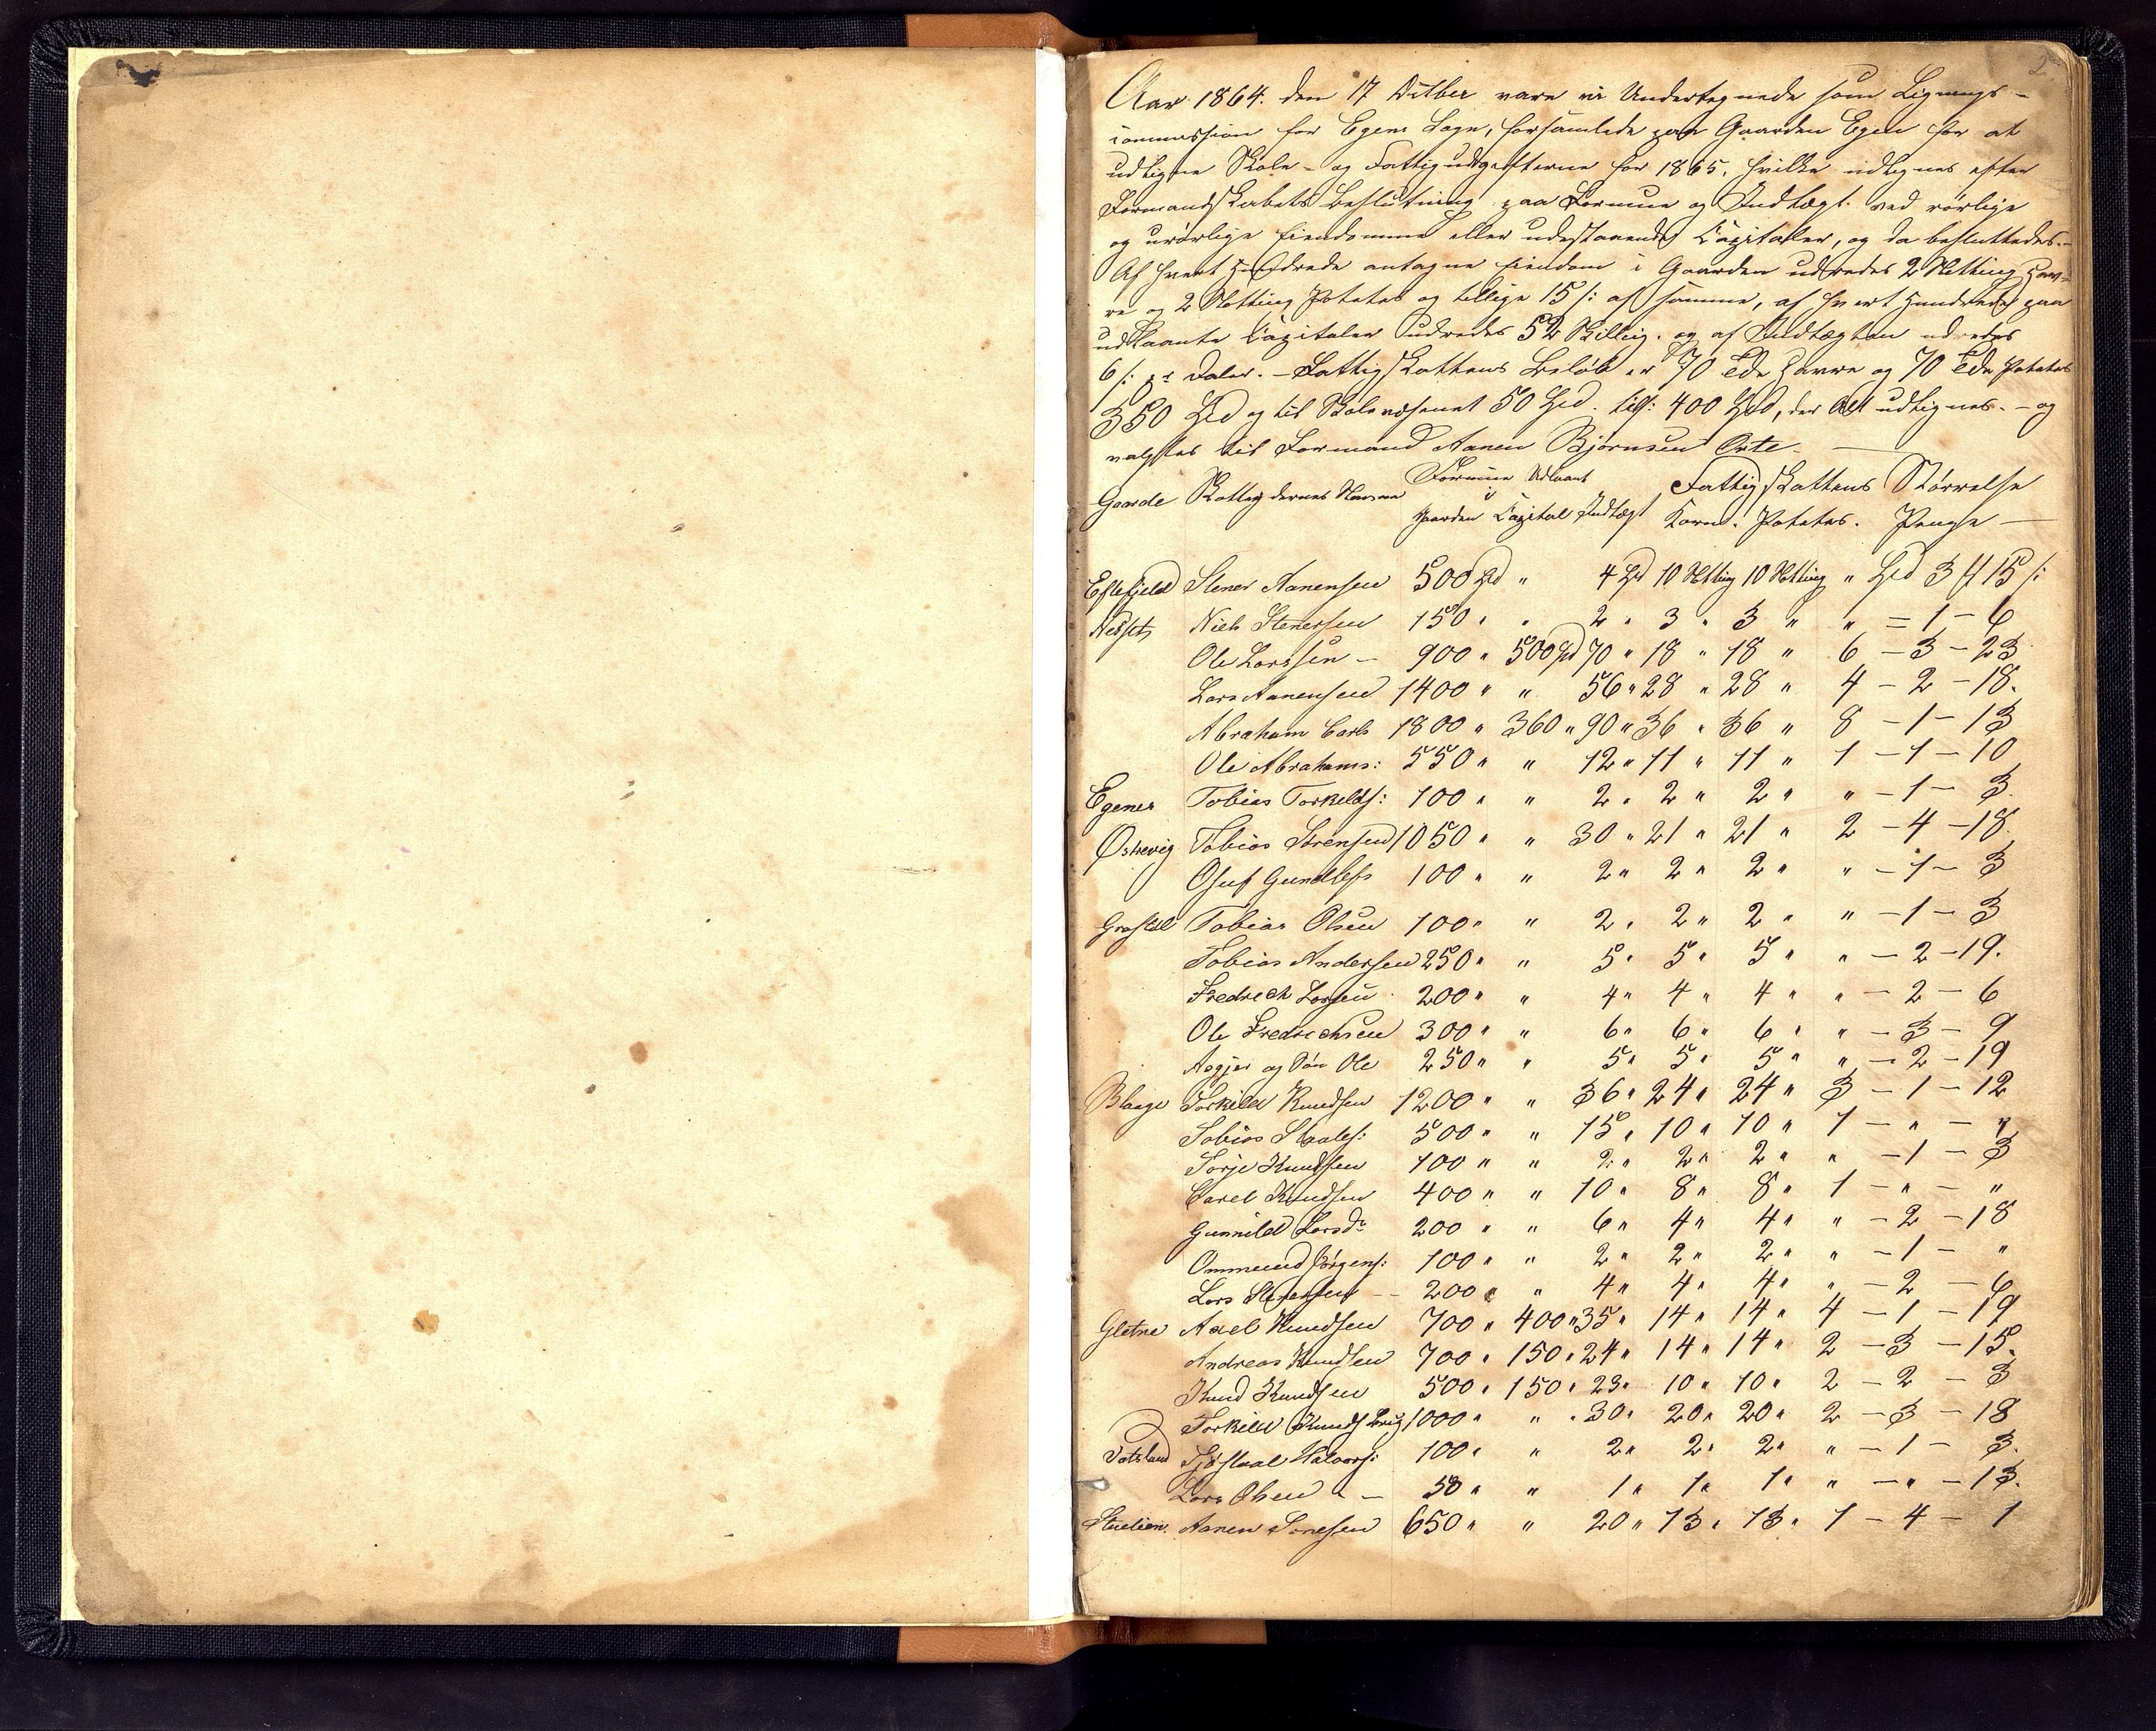 2
Aar 1864. den 17 Octber vare vi Undertegnede som Lignings-
commission for Egens Sogn, forsamlede paa Gaarden Egen for at
udligne Skole- og Fattigudgifterne for 1865, hvilke udlignes efter
Formandskabets Beslutning paa Formue og Indtægt ved rørlige
og urørlige Eiendomme eller udestaaende Capitaler, og da besluttedes.-
Af hvert Hundrede antagne Eiendom i Gaarden udredes 2 Setting Hav-
re og 2 Setting Potetes og tillige 15 /: af samme, af hvert Hundrede paa
udlaante Capitaler udredes 52 Skilling. og af Indtægten udredes
6 /: pr Daler. - Fattigskattens Beløb er 70 Tde Havre og 70 Tde Potetes
350 Spd og til Skolevæsenet 50 Spd. til: 400 Spd, der alt udlignes. - og
valgtes til Formand Aanen Bjørnsen Ovte.
Gaarde Skatteydernes Navne Formue i Gaarden Udlaant Capital Indtægt Fattigskattens Størrelse
Korn. Potetes. Penge
Eftefjeld Stener Aanensen 500 Spd " 4 Spd 10 Setting 10 Setting " Spd 3 ℔ 15 /:
Nedset Niels Stenersen 150 " " 2 " 3 " 3 " " = 1 - 6
Ole Larssen - 900 " 500 Spd 70 " 18 " 18 " 6 - 3 - 23
Lars Aanensen 1400 " " 56 " 28 " 28 " 4 - 2 - 18.
Abraham Carls 1800 " 360 " 90 " 36 " 36 " 8 - 1 - 13
Ole Abrahams: 550 " " 12 " 11 " 11 " 1 - 1 - 10
Egenes Tobias Torkelds: 100 " " 2 " 2 " 2 " " - 1 - 3.
Østrevig Tobias Sørensen 1050 " " 30 " 21 " 21 " 2 - 4 - 18.
Osuf Gundlefs 100 " " 2 " 2 " 2 " " - 1 - 3
Grostøl Tobias Olsen 100 " " 2 " 2 " 2 " " - 1 - 3
Tobias Andersen 250 " " 5 " 5 " 5 " " - 2 - 19.
Fredrech Larsen 200 " " 4 " 4 " 4 " " - 2 - 6
Ole Fredrechsen 300 " " 6 " 6 " 6 " " - 3 - 9
Asgjer og Søn Ole 250 " " 5 " 5 " 5 " " - 2 - 19
Blaage Torkild Knudsen 1200 " " 36 " 24 " 24 " 3 - 1 - 12
Tobias Staales: 500 " " 15 " 10 " 10 " 1 - " - "
Torje Knudsen 100 " " 2 " 2 " 2 " " - 1 - 3
Carel Knudsen 400 " " 10 " 8 " 8 " 1 - " - "
Gunnild Larsdr 200 " " 6 " 4 " 4 " " - 2 - 18
Ommund Jørgens: 100 " " 2 " 2 " 2 " " - 1 - "
Lars Stenersen - 200 " " 4 " 4 " 4 " " - 2 - 6
Gletne Axel Knudsen 700 " 400 " 35 " 14 " 14 " 4 - 1 - 19
Andreas Knudsen 700 " 150 " 24 " 14 " 14 " 2 - 3 - 15.
Knud Knudsen 500 " 150 " 23 " 10 " 10 " 2 - 2 - 3
Torkild Knuds 1000 " " 30 " 20 " 20 " 2 - 3 - 18
Vatsland Halvors: 100 " " 2 " 2 " 2 " " - 1 - 3.
Lars Olsen - 50 " " 1 " 1 " 1 " " - " - 13.
Stuelien Aanen Tonesen 650 " " 20 " 13 " 13 " 1 - 4 - 1